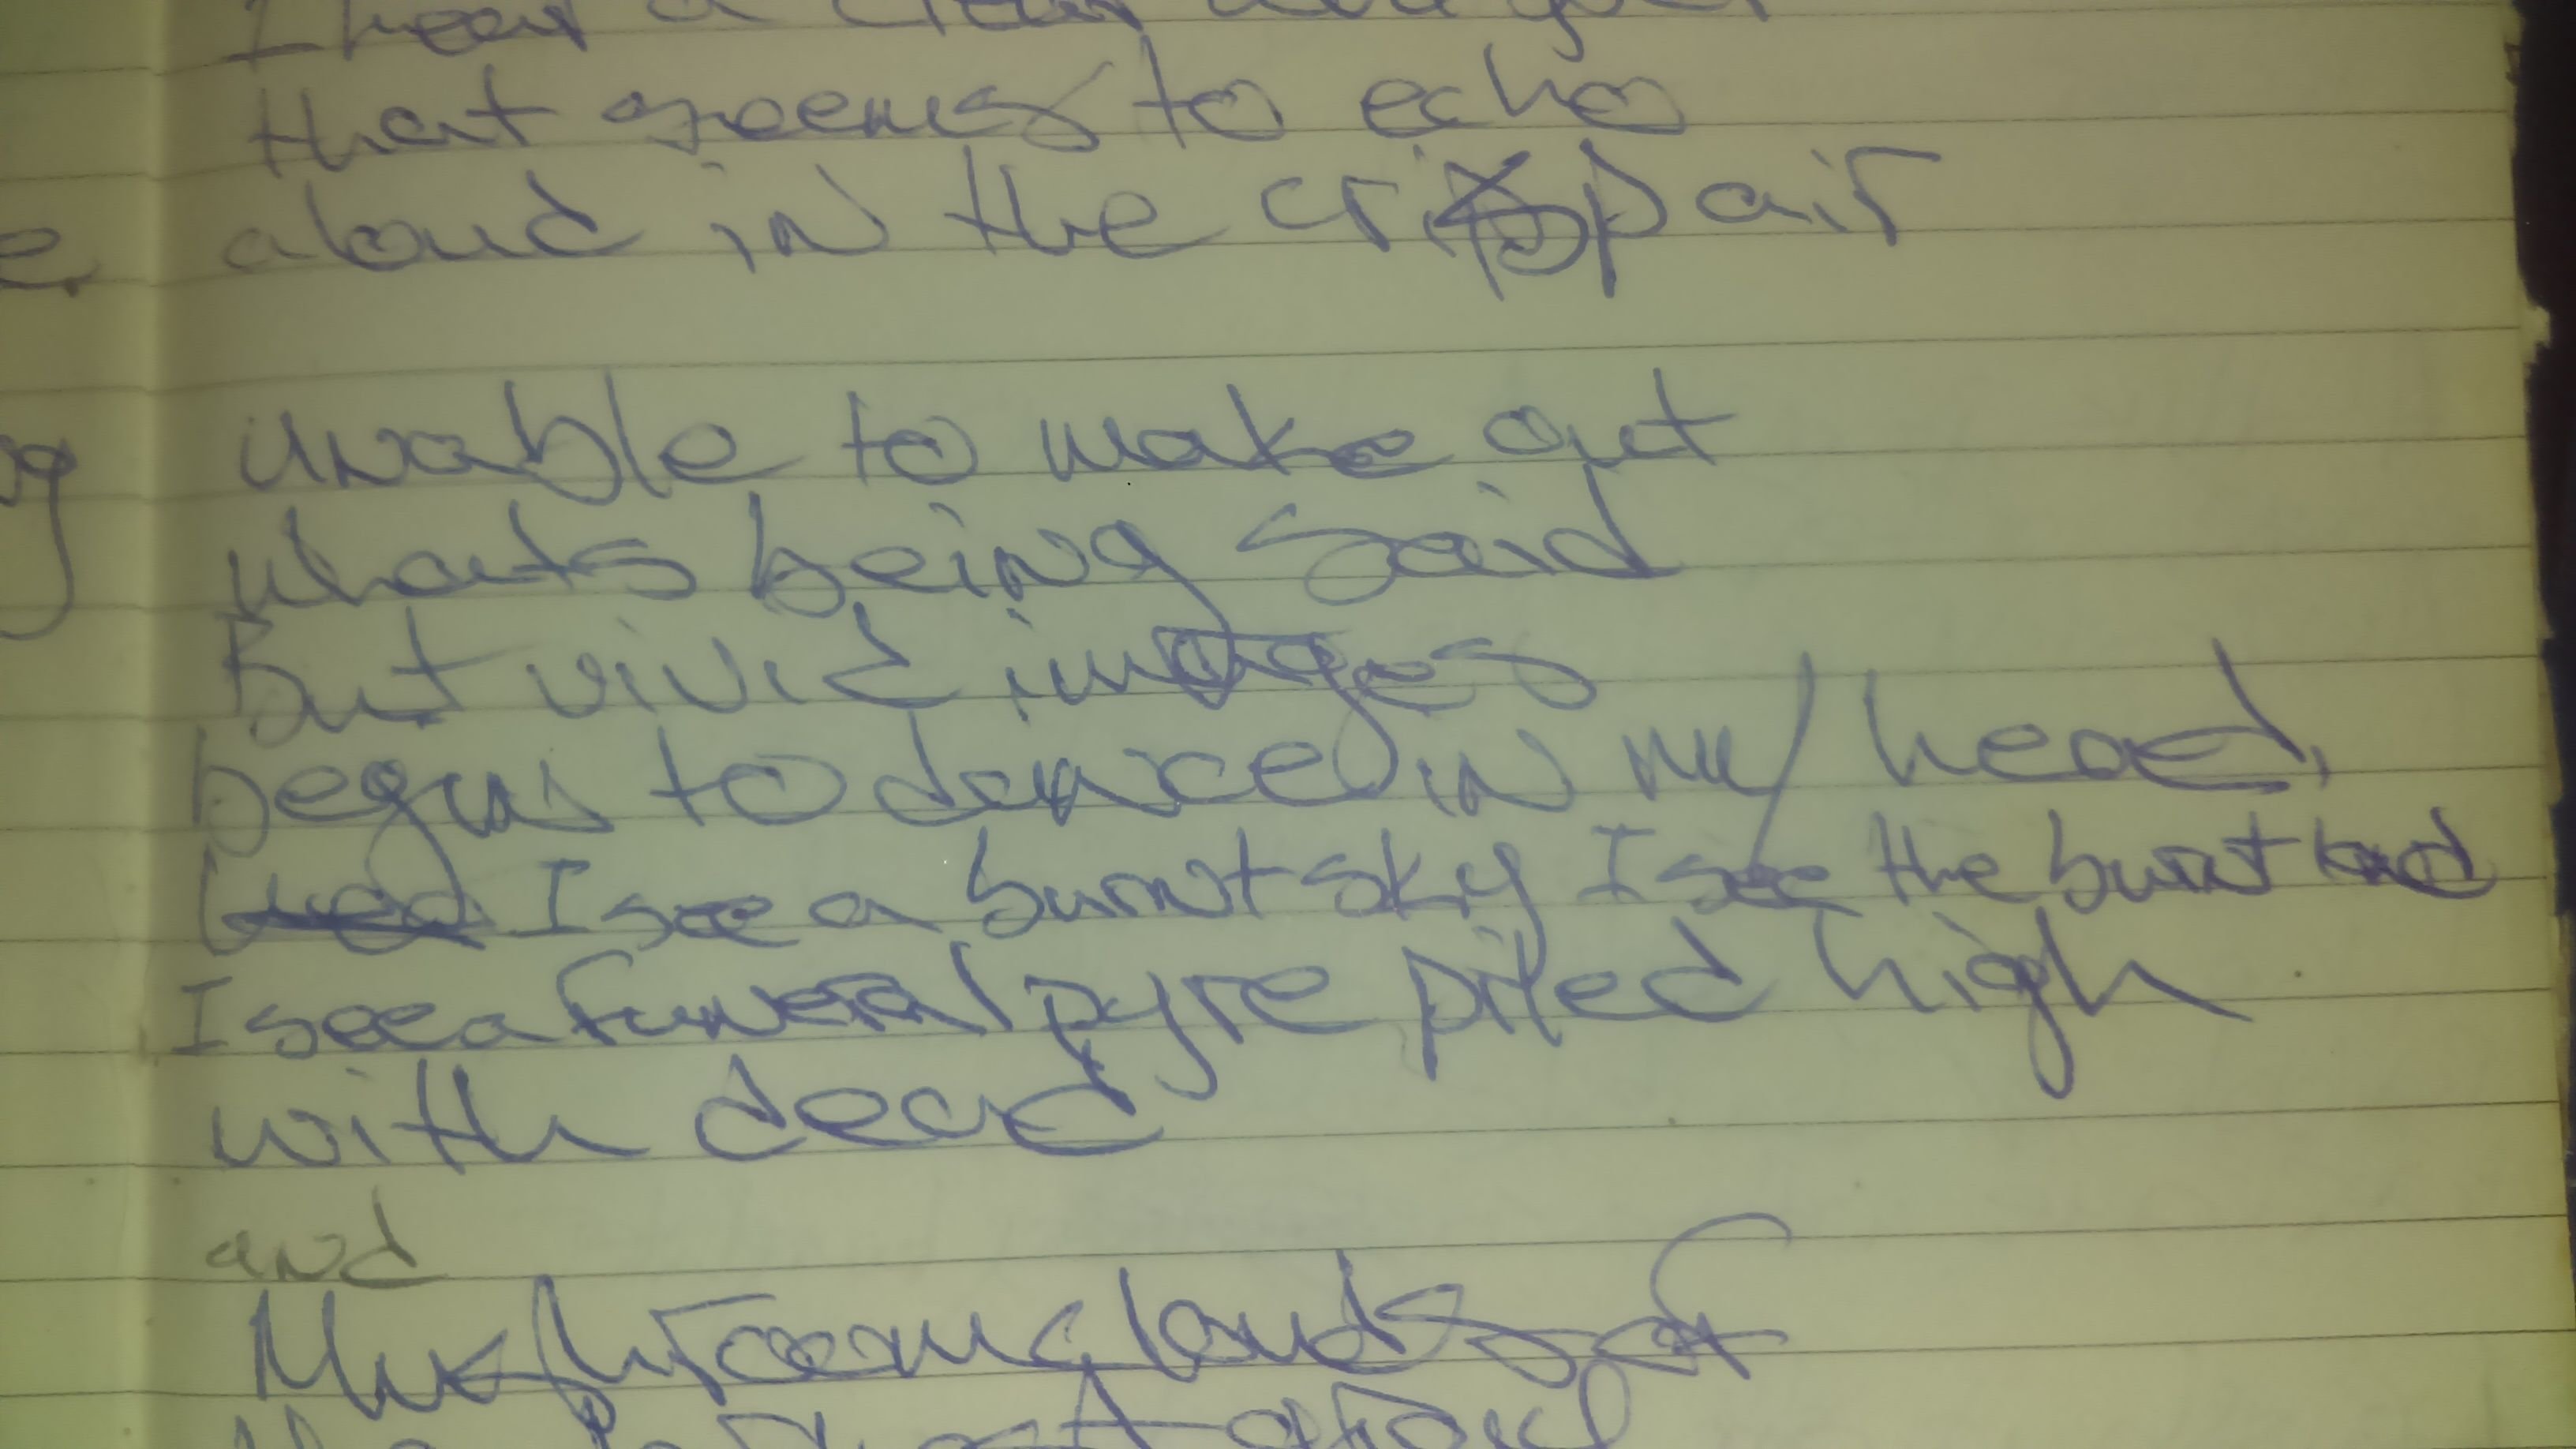 I hear a clear
that seems to echo
aloud in the crisp air
unable to make out
whats being said
But vivid images
begin to dance in my head,
I see a burnt sky I see the burnt
I see a funeral pyre piled high
with dead
and
Mushroom clouds of